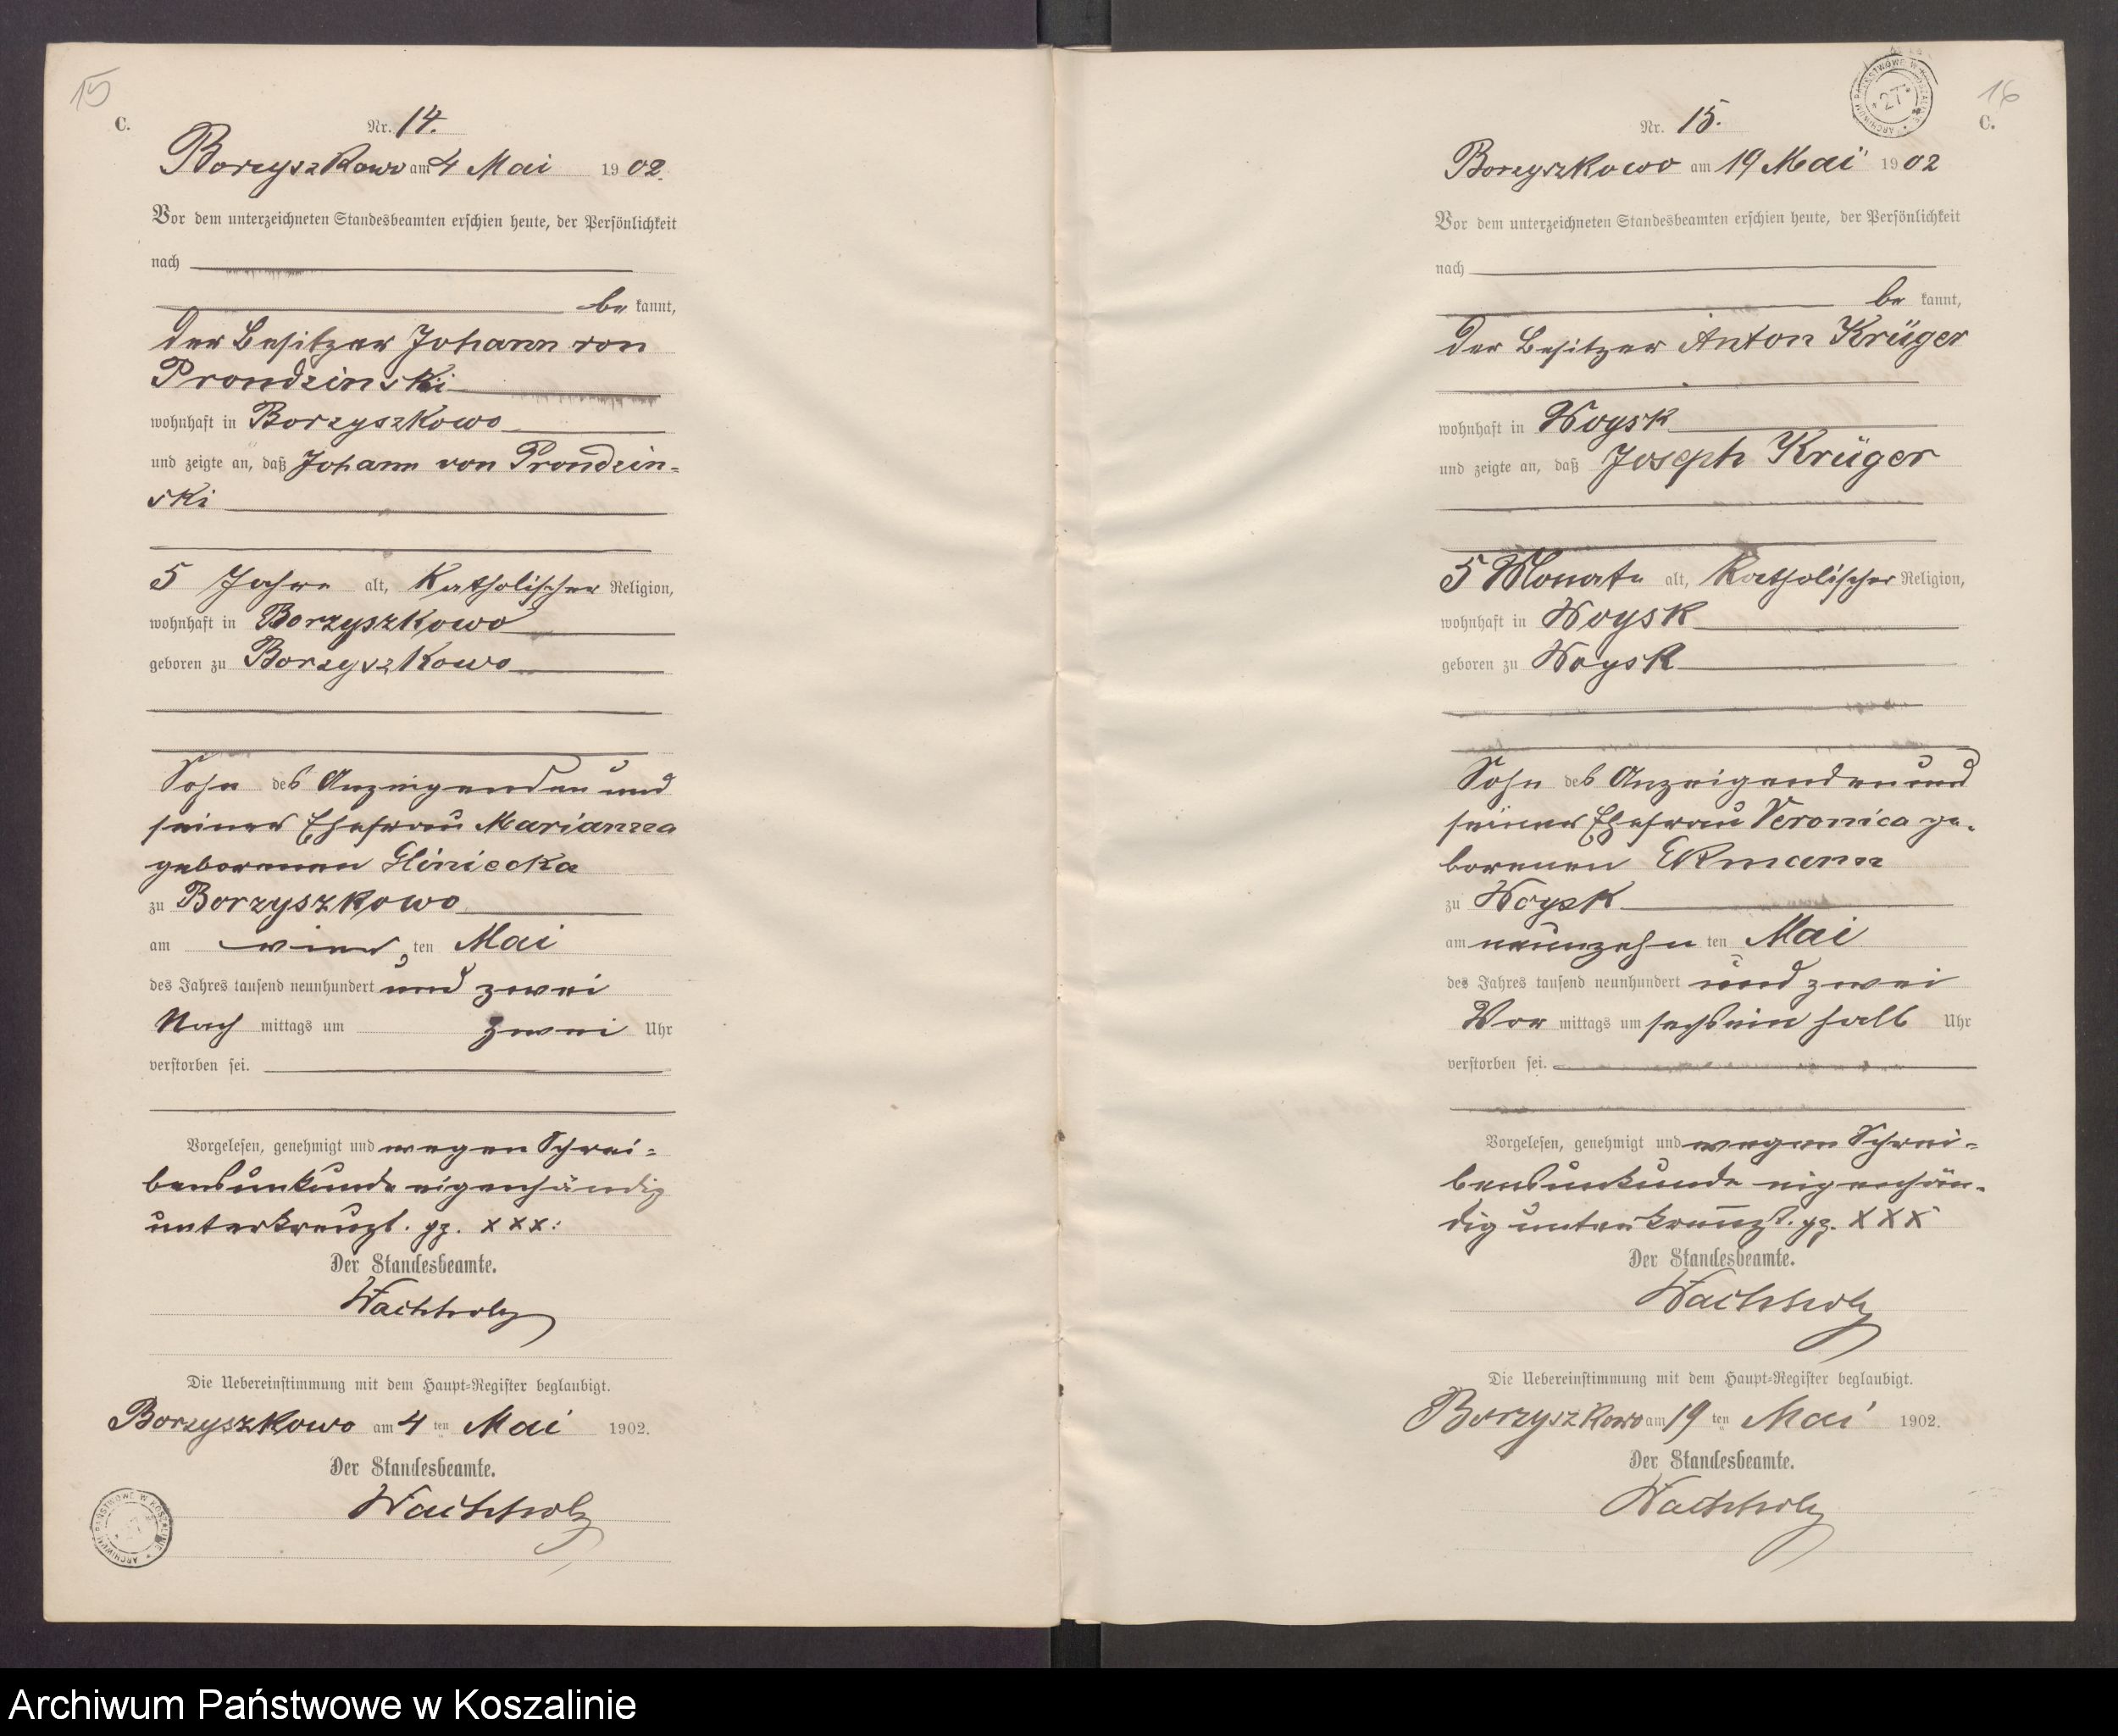 15
C.
Nr. 14.
Borzyszkowo am 4 Mai 1902.
Vor dem unterzeichneten Standesbeamten erschien heute, der Persönlichkeit
nach
be kannt,
der Besitzer Johann von
Prondzinski
wohnhaft in Borzyszkowo
und zeigte an, daß Johann von Prondzin=
ski
5 Jahre alt, katholischer Religion,
wohnhaft in Borzyszkowo
geboren zu Borzyszkowo
Sohn des Anzeigenden und
seiner Ehefrau Marianna
geborenen Gliniecka
zu Borzyszkowo
am vier ten Mai
des Jahres tausend neunhundert und zwei
Nach mittags um zwei Uhr
verstorben sei.
Vorgelesen, genehmigt und wegen Schrei=
bensunkunde eigenhändig
unterkreuzt. gz. x x x:
Der Standesbeamte.
Wachholz
Die Uebereinstimmung mit dem Haupt=Register beglaubigt.
Borzyszkowo am 4 ten Mai 1902.
Der Standesbeamte.
Wachholz
ARCHIWUM PAŃSTWOWE W KOSZALINIE
16
C.
ARCHIWUM PAŃSTWOWE W KOSZALINIE
27
Nr. 15.
Borzyszkowo am 19 Mai 1902
Vor dem unterzeichneten Standesbeamten erschien heute, der Persönlichkeit
nach
be kannt,
der Besitzer Anton Krüger
wohnhaft in Woysk
und zeigte an, daß Joseph Krüger
5 Monate alt, katholischer Religion,
wohnhaft in Woysk
geboren zu Woysk
Sohn des Anzeigenden und
seiner Ehefrau Veronica ge=
borenen Ekmann
zu Woysk
am neunzehn ten Mai
des Jahres tausend neunhundert und zwei
Vor mittags um sechs ein halb Uhr
verstorben sei.
Vorgelesen, genehmigt und wegen Schrei=
bensunkunde eigenhän=
dig unterkreuzt. gz. X X X
Der Standesbeamte.
Wachholz
Die Uebereinstimmung mit dem Haupt=Register beglaubigt.
Borzyszkowo am 19 ten Mai 1902.
Der Standesbeamte.
Wachholz
Archiwum Państwowe w Koszalinie